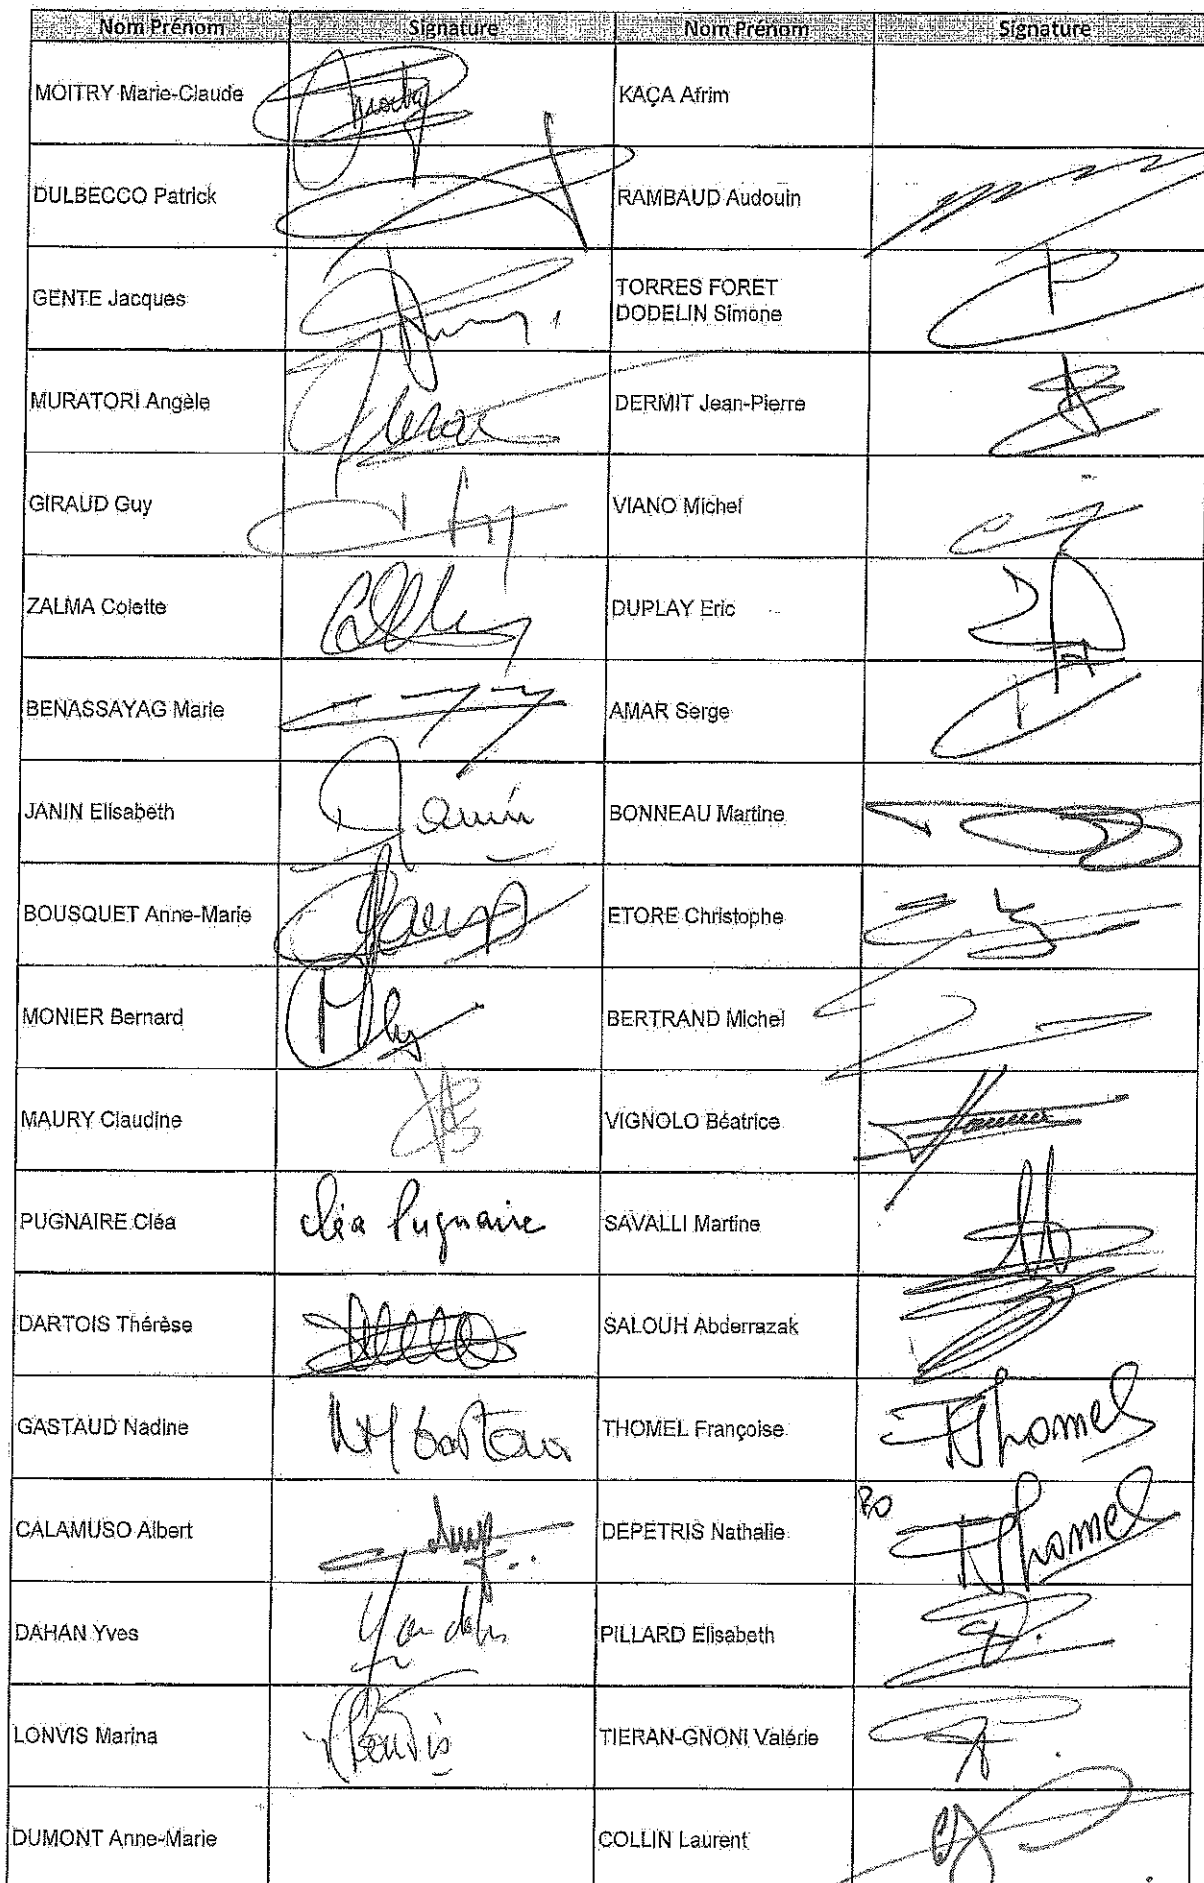 Nom Prénom Signature Nom Prénom Signature
MOITRY Marie-Claude KAÇA Afrim
DULBECCO Patrick RAMBAUD Audouin
GENTE Jacques TORRES FORET
DODELIN Simone
MURATORI Angèle DERMIT Jean-Pierre
GIRAUD Guy VIANO Michel
ZALMA Colette DUPLAY Eric
BENASSAYAG Marie AMAR Serge
JANIN Elisabeth Janin BONNEAU Martine
BOUSQUET Anne-Marie ETORE Christophe
MONIER Bernard BERTRAND Michel
MAURY Claudine VIGNOLO Béatrice
PUGNAIRE Cléa Cléa Pugnaire SAVALLI Martine
DARTOIS Thérèse SALOUH Abderrazak
GASTAUD Nadine THOMEL Françoise FThomel
CALAMUSO Albert DEPETRIS Nathalie PO FThomel
DAHAN Yves PILLARD Elisabeth
LONVIS Marina Lonvis TIERAN-GNONI Valérie
DUMONT Anne-Marie COLLIN Laurent